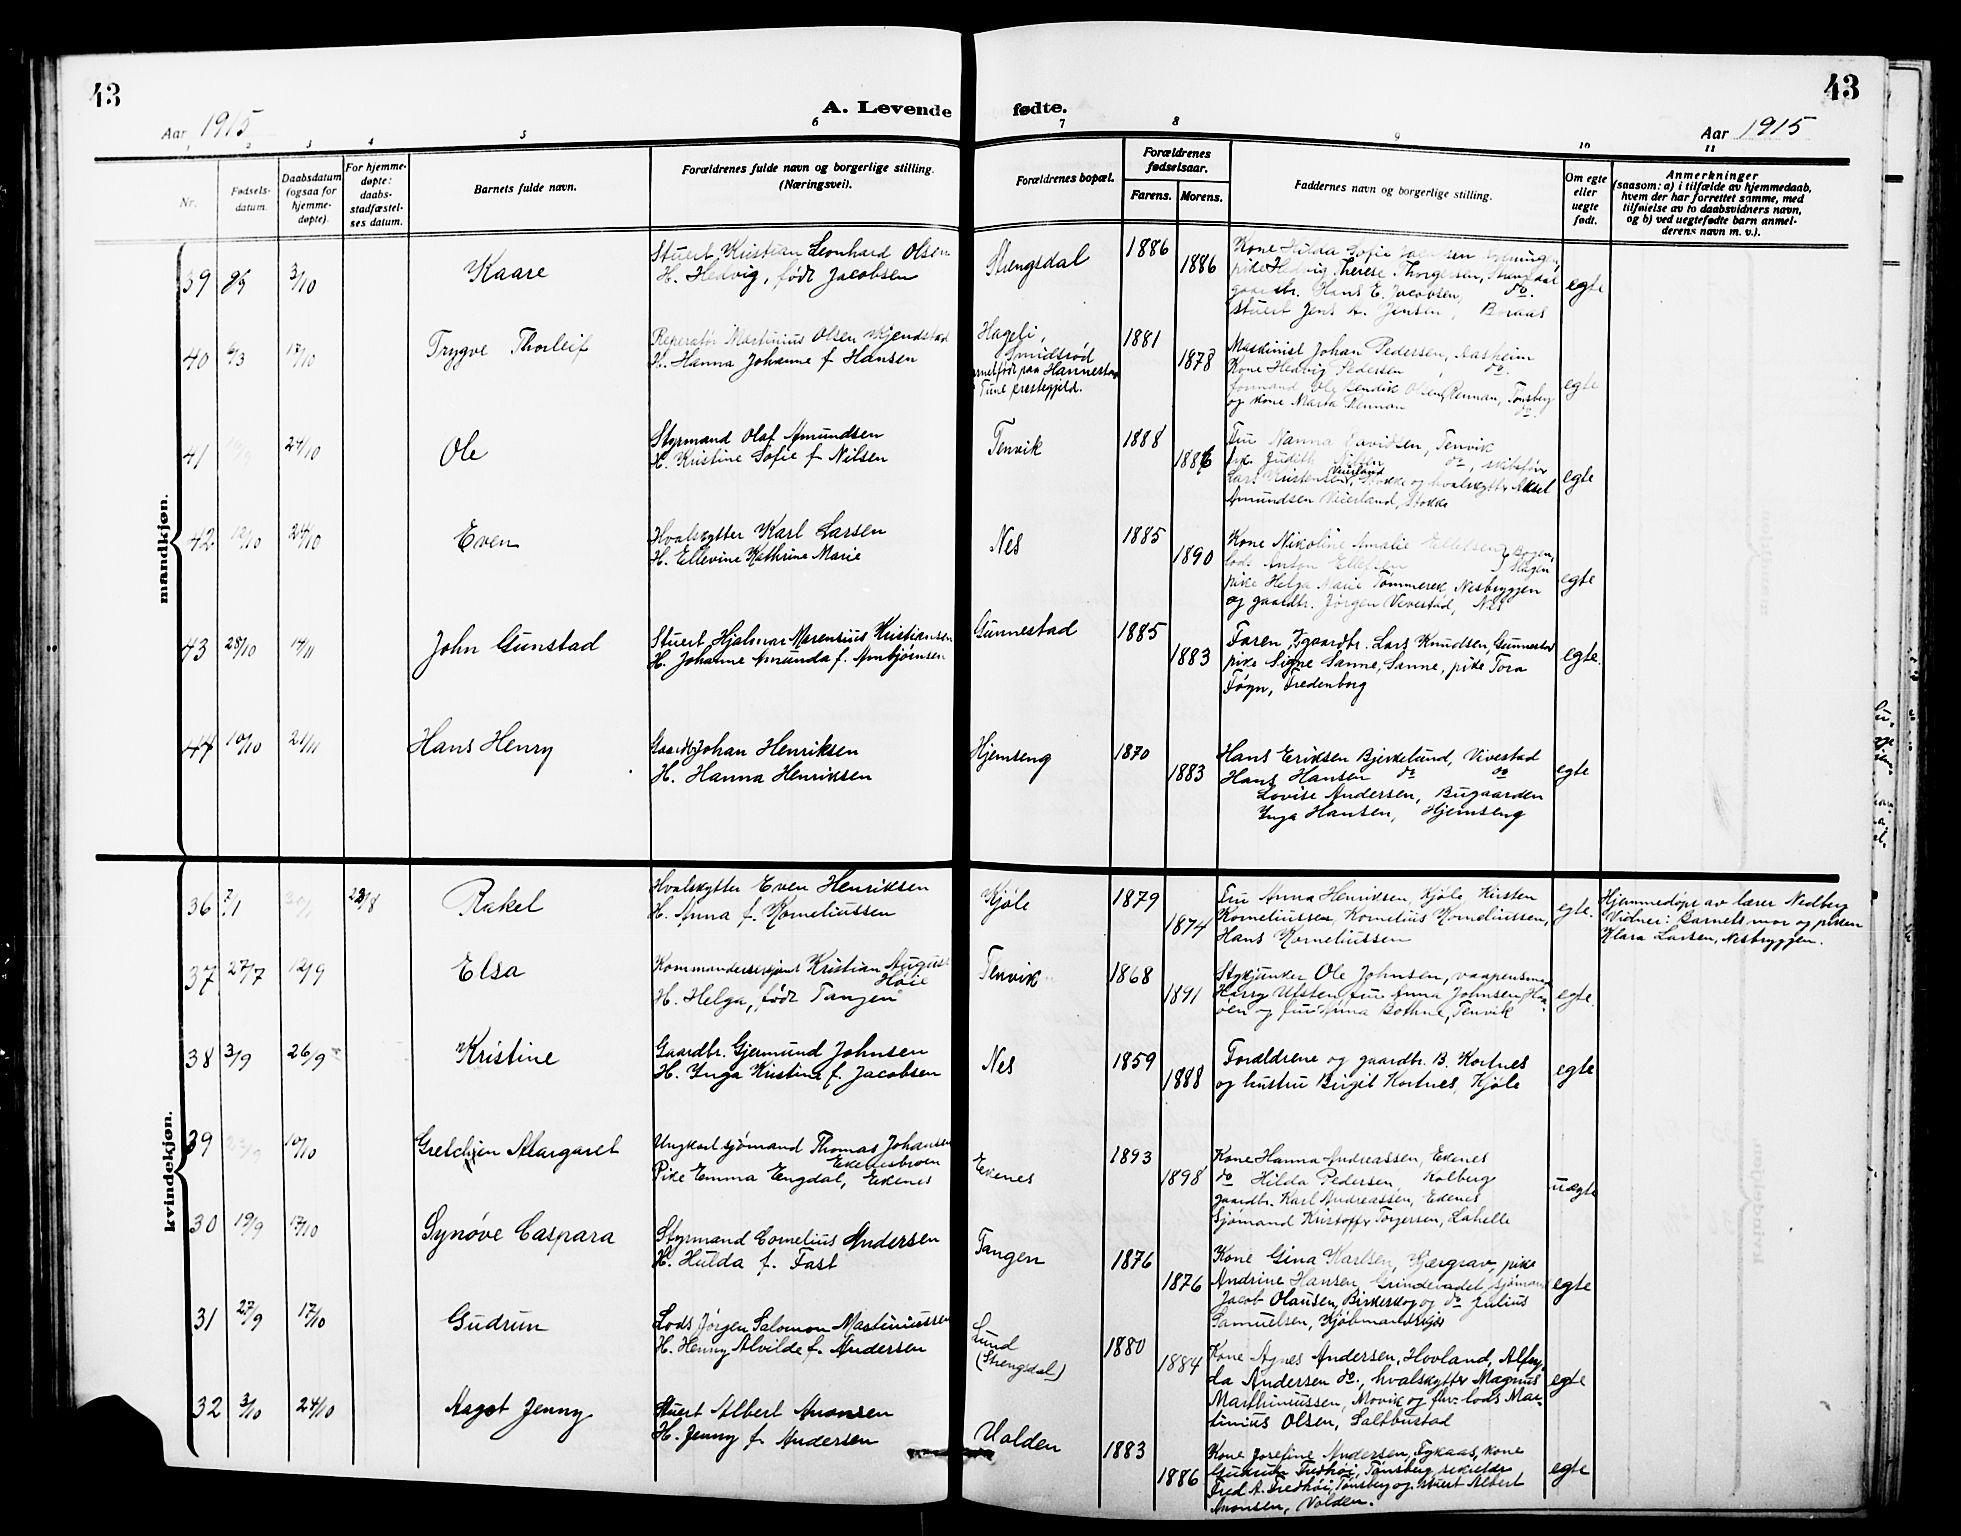 43
43
Aar 1915
A. Levende fødte.
Aar 1915
1 2 3 4 5 6 7 8 9 10 11
Nr.
Fødsels-
datum.
Daabsdatum
(ogsaa for
hjemme-
døpte).
For hjemme-
døpte:
daabs-
stadfæstel-
ses datum.
Barnets fulde navn.
Forældrenes fulde navn og borgerlige stilling.
(Næringsvei).
Forældrenes bopæl.
Forældrenes
fødselsaar.
Farens. Morens.
Faddernes navn og borgerlige stilling.
Om egte
eller
uegte
født.
Anmerkninger
(saasom: a) i tilfælde av hjemmedaab,
hvem der har forrettet samme, med
tilføielse av to daabsvidners navn,
og b) ved uegtefødte barn anmel-
derens navn m. v.).
mandkjøn.
39 3/10 Kaare
Stuert Kristian Leonhard Olsen
H. Hedvig, født Jacobsen
Strengsdal 1886 1886
Kone Hilda Sofie
pike Hedvig Therese Thorgersen,
gaardbr. Hans E. Jacobsen, do.
Stuert Jens A. Jensen, Boraas
egte
40 17/10 Trygve Thorleif
Reperatør Martinius Olsen Kjendstad
H. Hanna Johanne f. Hansen
Hageli,
Smidsrød
født paa Hannestad
Tune prestegjeld.
1881 1878
Maskinist Johan Pedersen, Aasheim
Kone Hedvig Pedersen do.
formand Ole Bendik Olsen Rennan, Tønsberg
og kone Marta Rennan do.
egte
41 24/10 Ole
Styrmand Olaf Amundsen
H. Kristine Sofie f. Nilsen
Tenvik 1888 1886
Fru Nanna Davidsen, Tenvik
frk. Judith Nilsen do, skibsfør.
Lars Kristensen, Veierland, Stokke og hvalskytter Aksel
Amundsen Veierland, Stokke
egte
42 12/10 24/10 Even
Hvalskytter Karl Larsen
H. Ellevine Kathrine Marie
Nes 1885 1890
Kone Nikoline Amalie Ellefsen Bogen,
lods Anton Ellefsen Slagen
pike Helga Marie Tømmerek, Nesbryggen
og gaardbr. Jørgen Vivestad, Nes
egte
43 28/10 14/11 John Gunstad
Stuert Hjalmar Marensius Kristiansen
H. Johanne Amunda f. Ambjørnsen
Gunnestad 1885 1883
Faren, gaardbr. Lars Knudsen, Gunnestad
pike Signe Sanne, Sanne, pike Tora
Føyn, Fredenborg
egte.
44 10/10 21/11 Hans Henry
Gaardbr. Johan Henriksen
H. Hanna Henriksen
Hjemseng 1870 1883
Hans Eriksen Bjerkelund, Vivestad
Hans Hansen do do
Lovise Andersen, Bugaarden
Inga Hansen, Hjemseng
egte
kvindekjøn.
36 7/1 30/1 22/8 Rakel
Hvalskytter Even Henriksen
H. Anna f. Korneliussen
Kjøle 1879 1874
Fru Anna Henriksen, Kjøle, Kirsten
Korneliussen, Kornelius Korneliussen,
Hans Korneliussen
egte.
Hjemmedøpt av lærer Nedberg
Vidner: Barnets mor og piken
Klara Larsen, Nesbryggen.
37 27/7 12/9 Elsa
Kommandersersjant Kristian August
Høie
H. Helga, født Tangen
Tenvik 1868 1891
Stykjunker Ole Johnsen, vaapensmed
Harry Ulsten, fru Anna Johnsen,
øen og fru Anna Bothne, Tenvik
egte.
38 3/9 26/9 Kristine
Gaardbr. Gjermund Johnsen
H. Inga Kristine f. Jacobsen
Nes 1859 1888
Forældrene og gaardbr. B. Kortnes
og hustru Birgit Kortnes, Kjøle
egte
39 23/9 10/10 Gretchen Margaret
Ungkarl sjømand Thomas Johansen
Ekenesbroen
Pike Emma Engdal, Ekenes
Ekenes 1893 1898
Kone Hanna Andreassen, Ekenes
do Hilda Pedersen, Kolberg
gaardbr. Karl Andreassen, Ekenes
Sjømand Kristoffer Torgersen, Lahelle
uegte
30 19/9 17/10 Synøve Caspara
Styrmand Cornelius Andersen
H. Hulda f. Fast
Tangen 1876 1876
Kone Gina Karlsen, Kjærgrav, pike
Andrine Hansen, Grindevadet, sjømand
Jacob Olausen, Birkeskog og do Julius
Samuelsen, Kjøbmandskjær
egte
31 27/9 17/10 Gudrun
Lods Jørgen Salomon Martiniussen
H. Henny Alvilde f. Andersen
Lund
(Strengsdal)
1880 1884
Kone Agnes Andersen, Hovland, Alfhy-
da Andersen do., hvalskytter Magnus
Marthiniussen, Movik og fhv. lods Mar-
tinius Olsen, Saltbustad
egte
32 3/10 24/10 Aagot Jenny
Stuert Albert Anonsen
H. Jenny f. Andersen
Volden 1883 1886
Kone Josefine Andersen, Fykaas, kone
Gudrun Fredhøi, Tønsberg, sekretær
Fred A. Fredhøi, Tønsberg og stuert Albert
Anonsen, Volden.
egte